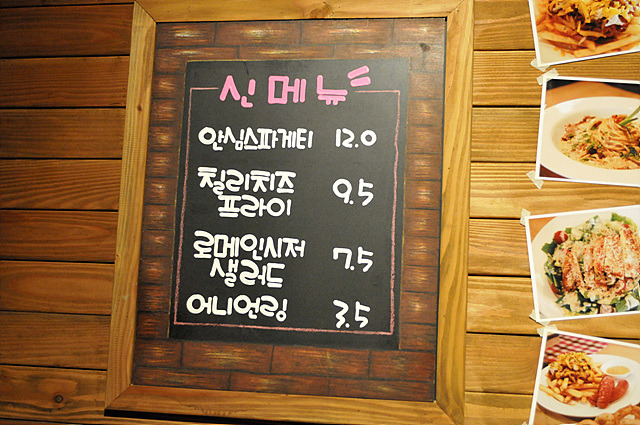 신메뉴
안심스파게티 12.0
칠리치즈
프라이 9.5
로메인시저
샐러드 7.5
어니언링 3.5